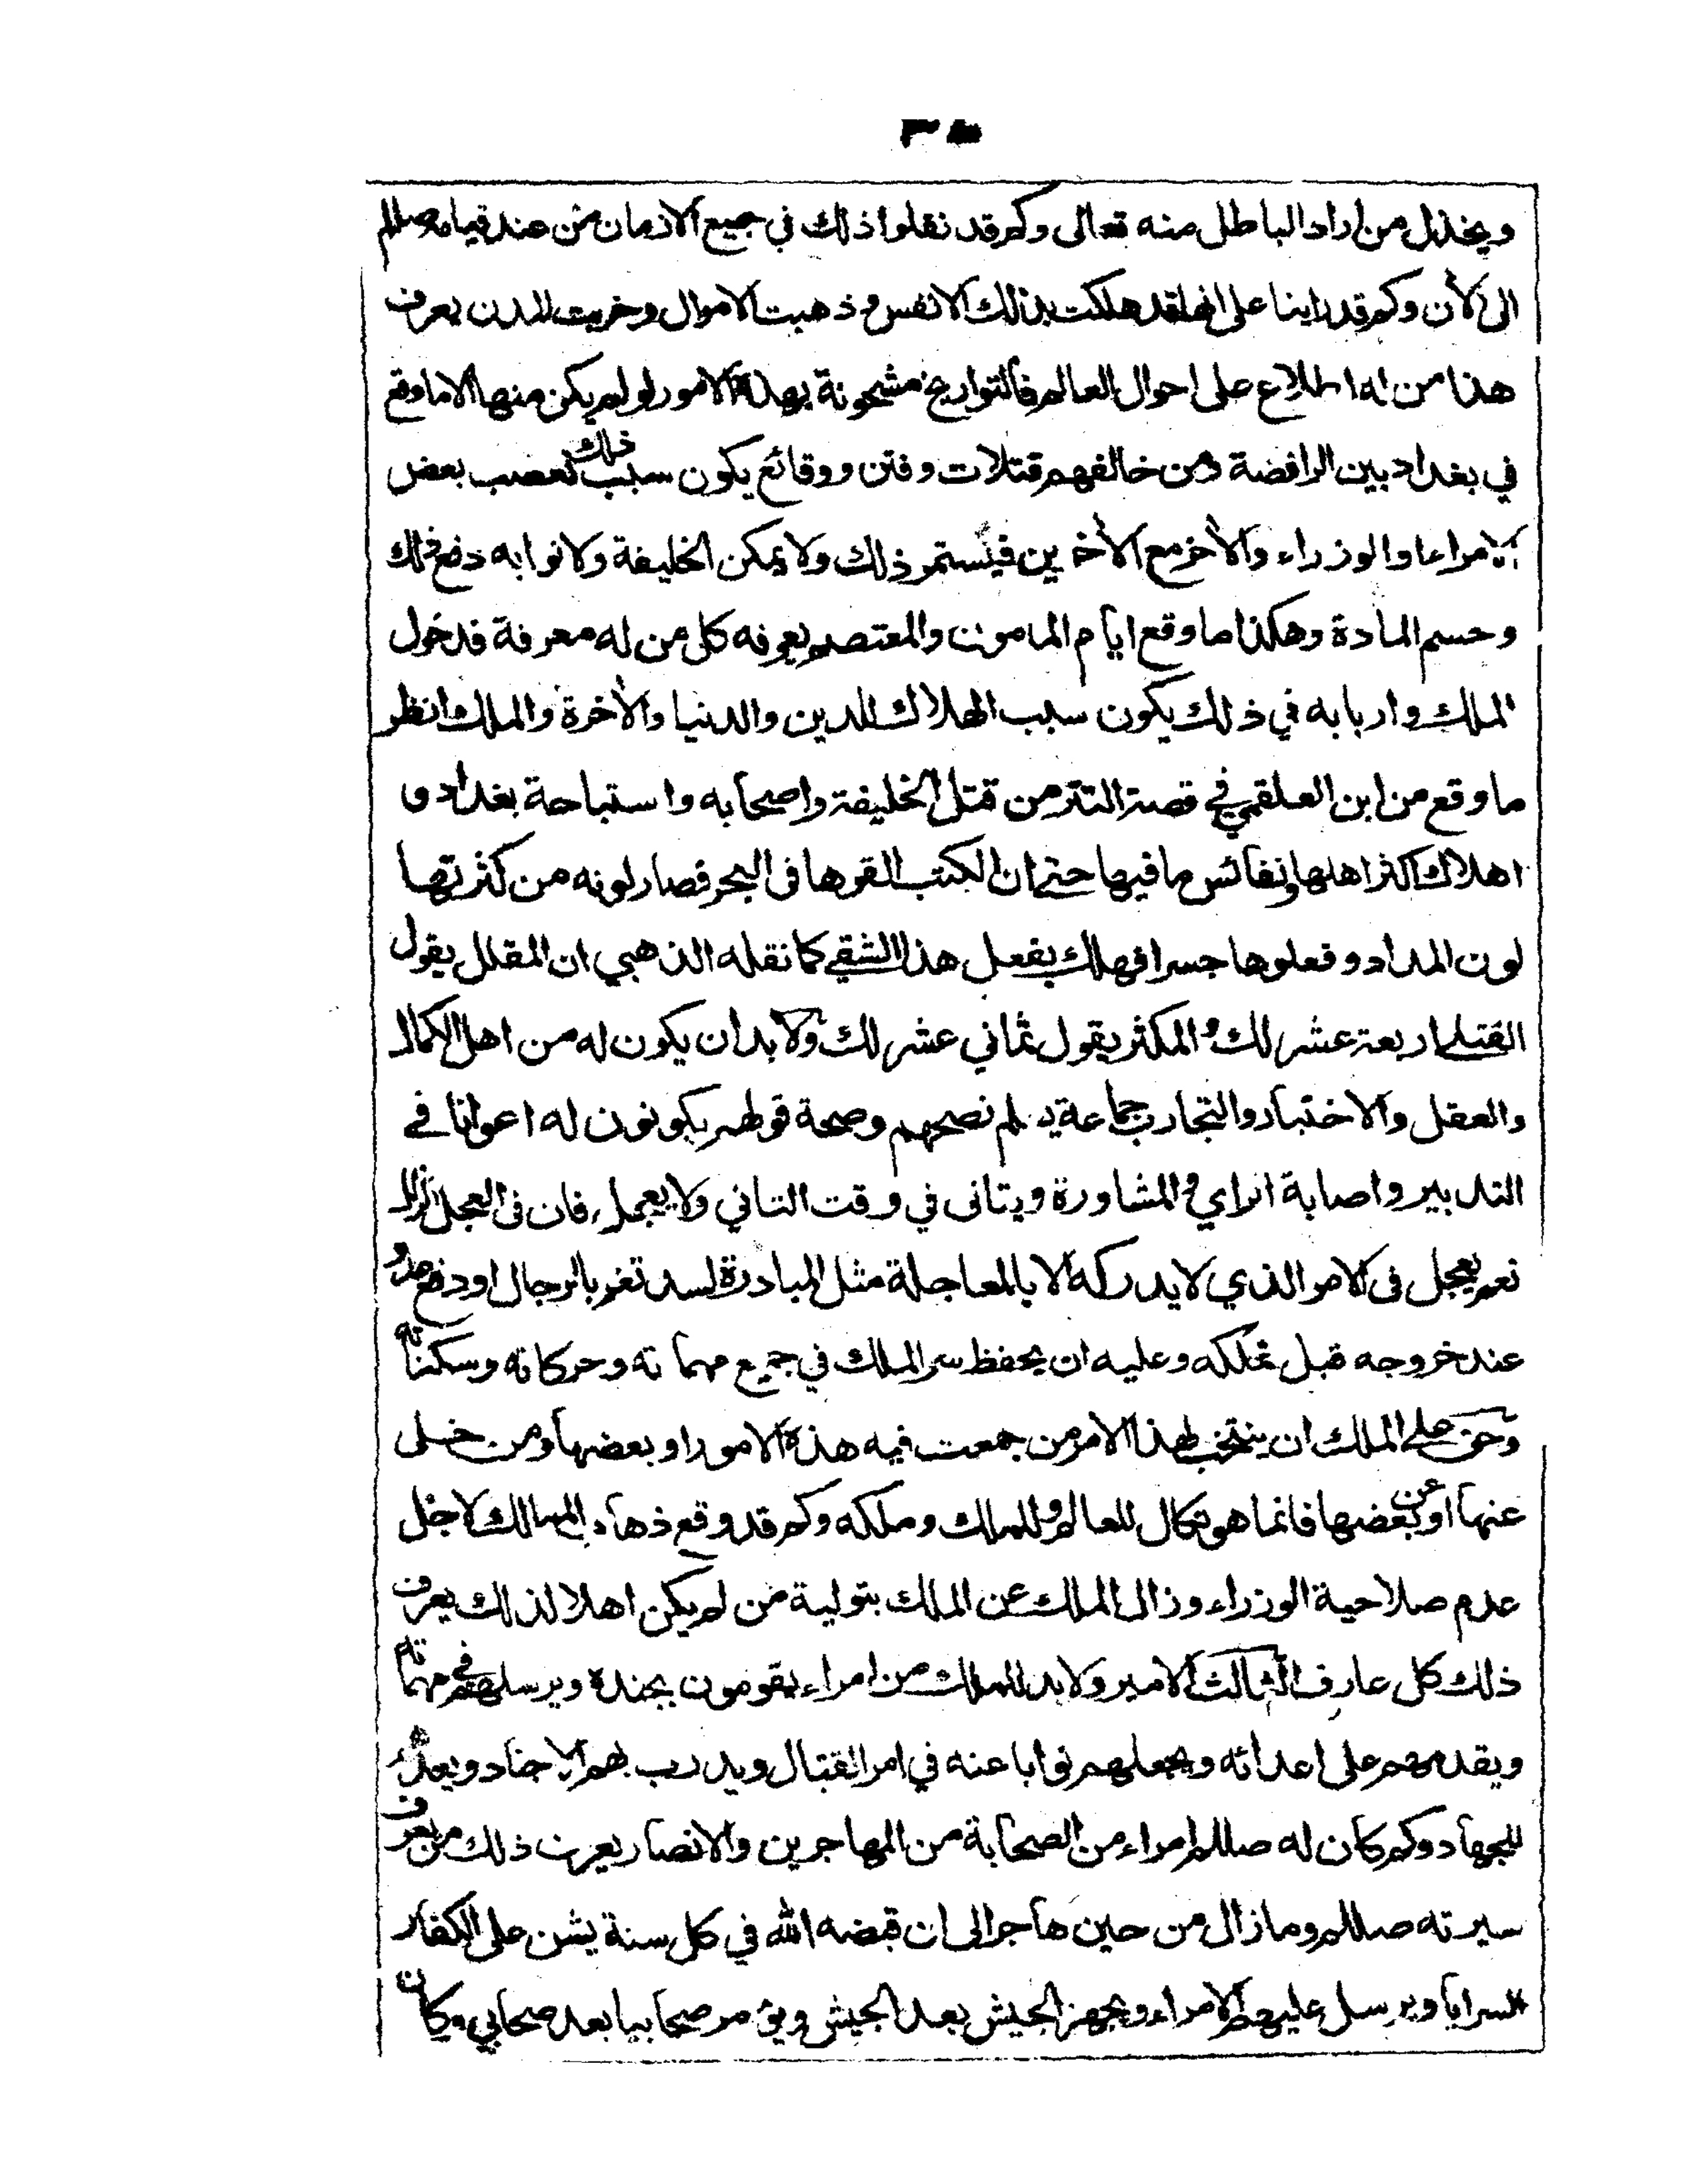 ٣٥
ويخذل من اراد الباطل منه تعالى وكم قد نقلوا ذلك في جميع الازمان من عند قيامه صللم
الى الأن وكم قد راينا على انها قد هلكت بذلك الانفس وذهبت الاموال وخربت المدن يعرف
هذا من له اطلاع على احوال العالم فالتواريخ مشحونة بهذة الامور لو لم يكن منها الا ما وقع
في بغداد بين الرافضة ومن خالفهم قتلات وفتن ووقائع يكون سبب ذلك تعصب بعض
الامراء او الوزراء والأخر مع الأخرين فيستمر ذلك ولا يمكن الخليفة ولا نوابه دفع ذلك
وحسم المادة وهكذا ما وقع ايام المامون والمعتصم يعرفه كل من له معرفة فدخول
الملك واربابه في ذلك يكون سبب الهلاك للدين والدنيا والأخرة والملك وانظر
ما وقع من ابن العلقمي في قصة التتر من قتل الخليفة واصحابه واستباحة بغداد و
اهلاك اكثر اهلها ونفائس ما فيها حتى ان الكتب القوها في البحر فصار لونه من كثرتها
لون المداد وفعلوها جسرا فهلك بفعل هذا الشقي كما نقله الذهبي ان المقلل يقول
القتلى اربعة عشر لك والمكثر يقول ثماني عشر لك ولا بد ان يكون له من اهل الكمال
والعقل والاختبار والتجارب جماعة يعلم نصحهم وصحة قولهم يكونون له اعوانا في
التدبير واصابة الراي والمشاورة ويتانى في وقت التاني ولا يعجل فان في العجل الزلل
نعم يعجل في الامر الذي لا يدركه الا بالمعاجلة مثل المبادرة لسد ثغر بالرجال او دفع عدو
عند خروجه قبل تملكه وعليه ان يحفظ سر الملك في جميع مهماته وحركاته وسكناته
وحق على الملك ان ينتخب لهذا الامر من جمعت فيه هذة الامور او بعضها ومن خلى
عنها او عن بعضها فانما هو نكال للعالم وللملك وملكه وكم قد وقع ذهاب الممالك لاجل
عدم صلاحية الوزراء وزال الملك عن الملك بتولية من لم يكن اهلا لذلك يعرف
ذلك كل عارف الثالث الامير ولا بد للملك من امراء يقومون بجنده ويرسلهم في مهماته
ويقدمهم على اعدائه ويجعلهم نوابا عنه في امر القتال ويدرب بهم الاجناد ويعدهم
للجهاد وكم كان له صللم امراء من الصحابة من المهاجرين والانصار يعرف ذلك من يعرف
سيرته صللم وما زال من حين هاجر الى ان قبضه الله في كل سنة يشن على الكفار
السرايا ويرسل عليهم الامراء ويجهز الجيش بعد الجيش ويؤمر صحابيا بعد صحابي وكان